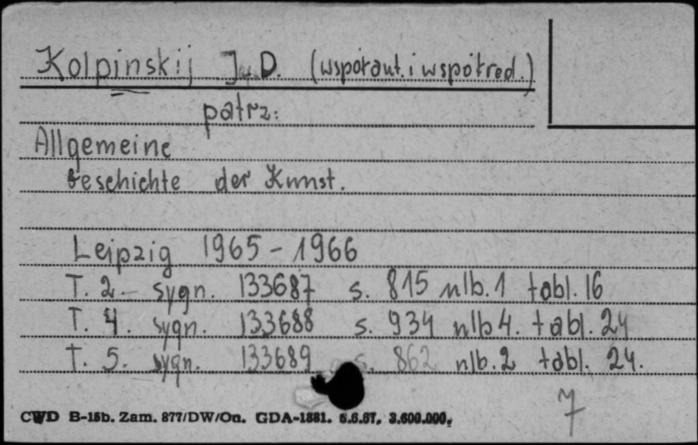 Kolpinskij Ju. D. (współaut. i współred.)
patrz:
Allgemeine
Geschichte der Kunst.
Leipzig 1965-1966
T. 2 - sygn. 133687 s. 815 nlb. 1 tabl. 16
T. 4. sygn. 133688 s. 934 nlb 4. tabl. 24
T. 5. sygn. 133689 s. 862 nlb. 2 tabl. 24.
7
CWD B-15b. Zam. 877/DW/On. GDA-1881. 5.5.67. 3.600.000.